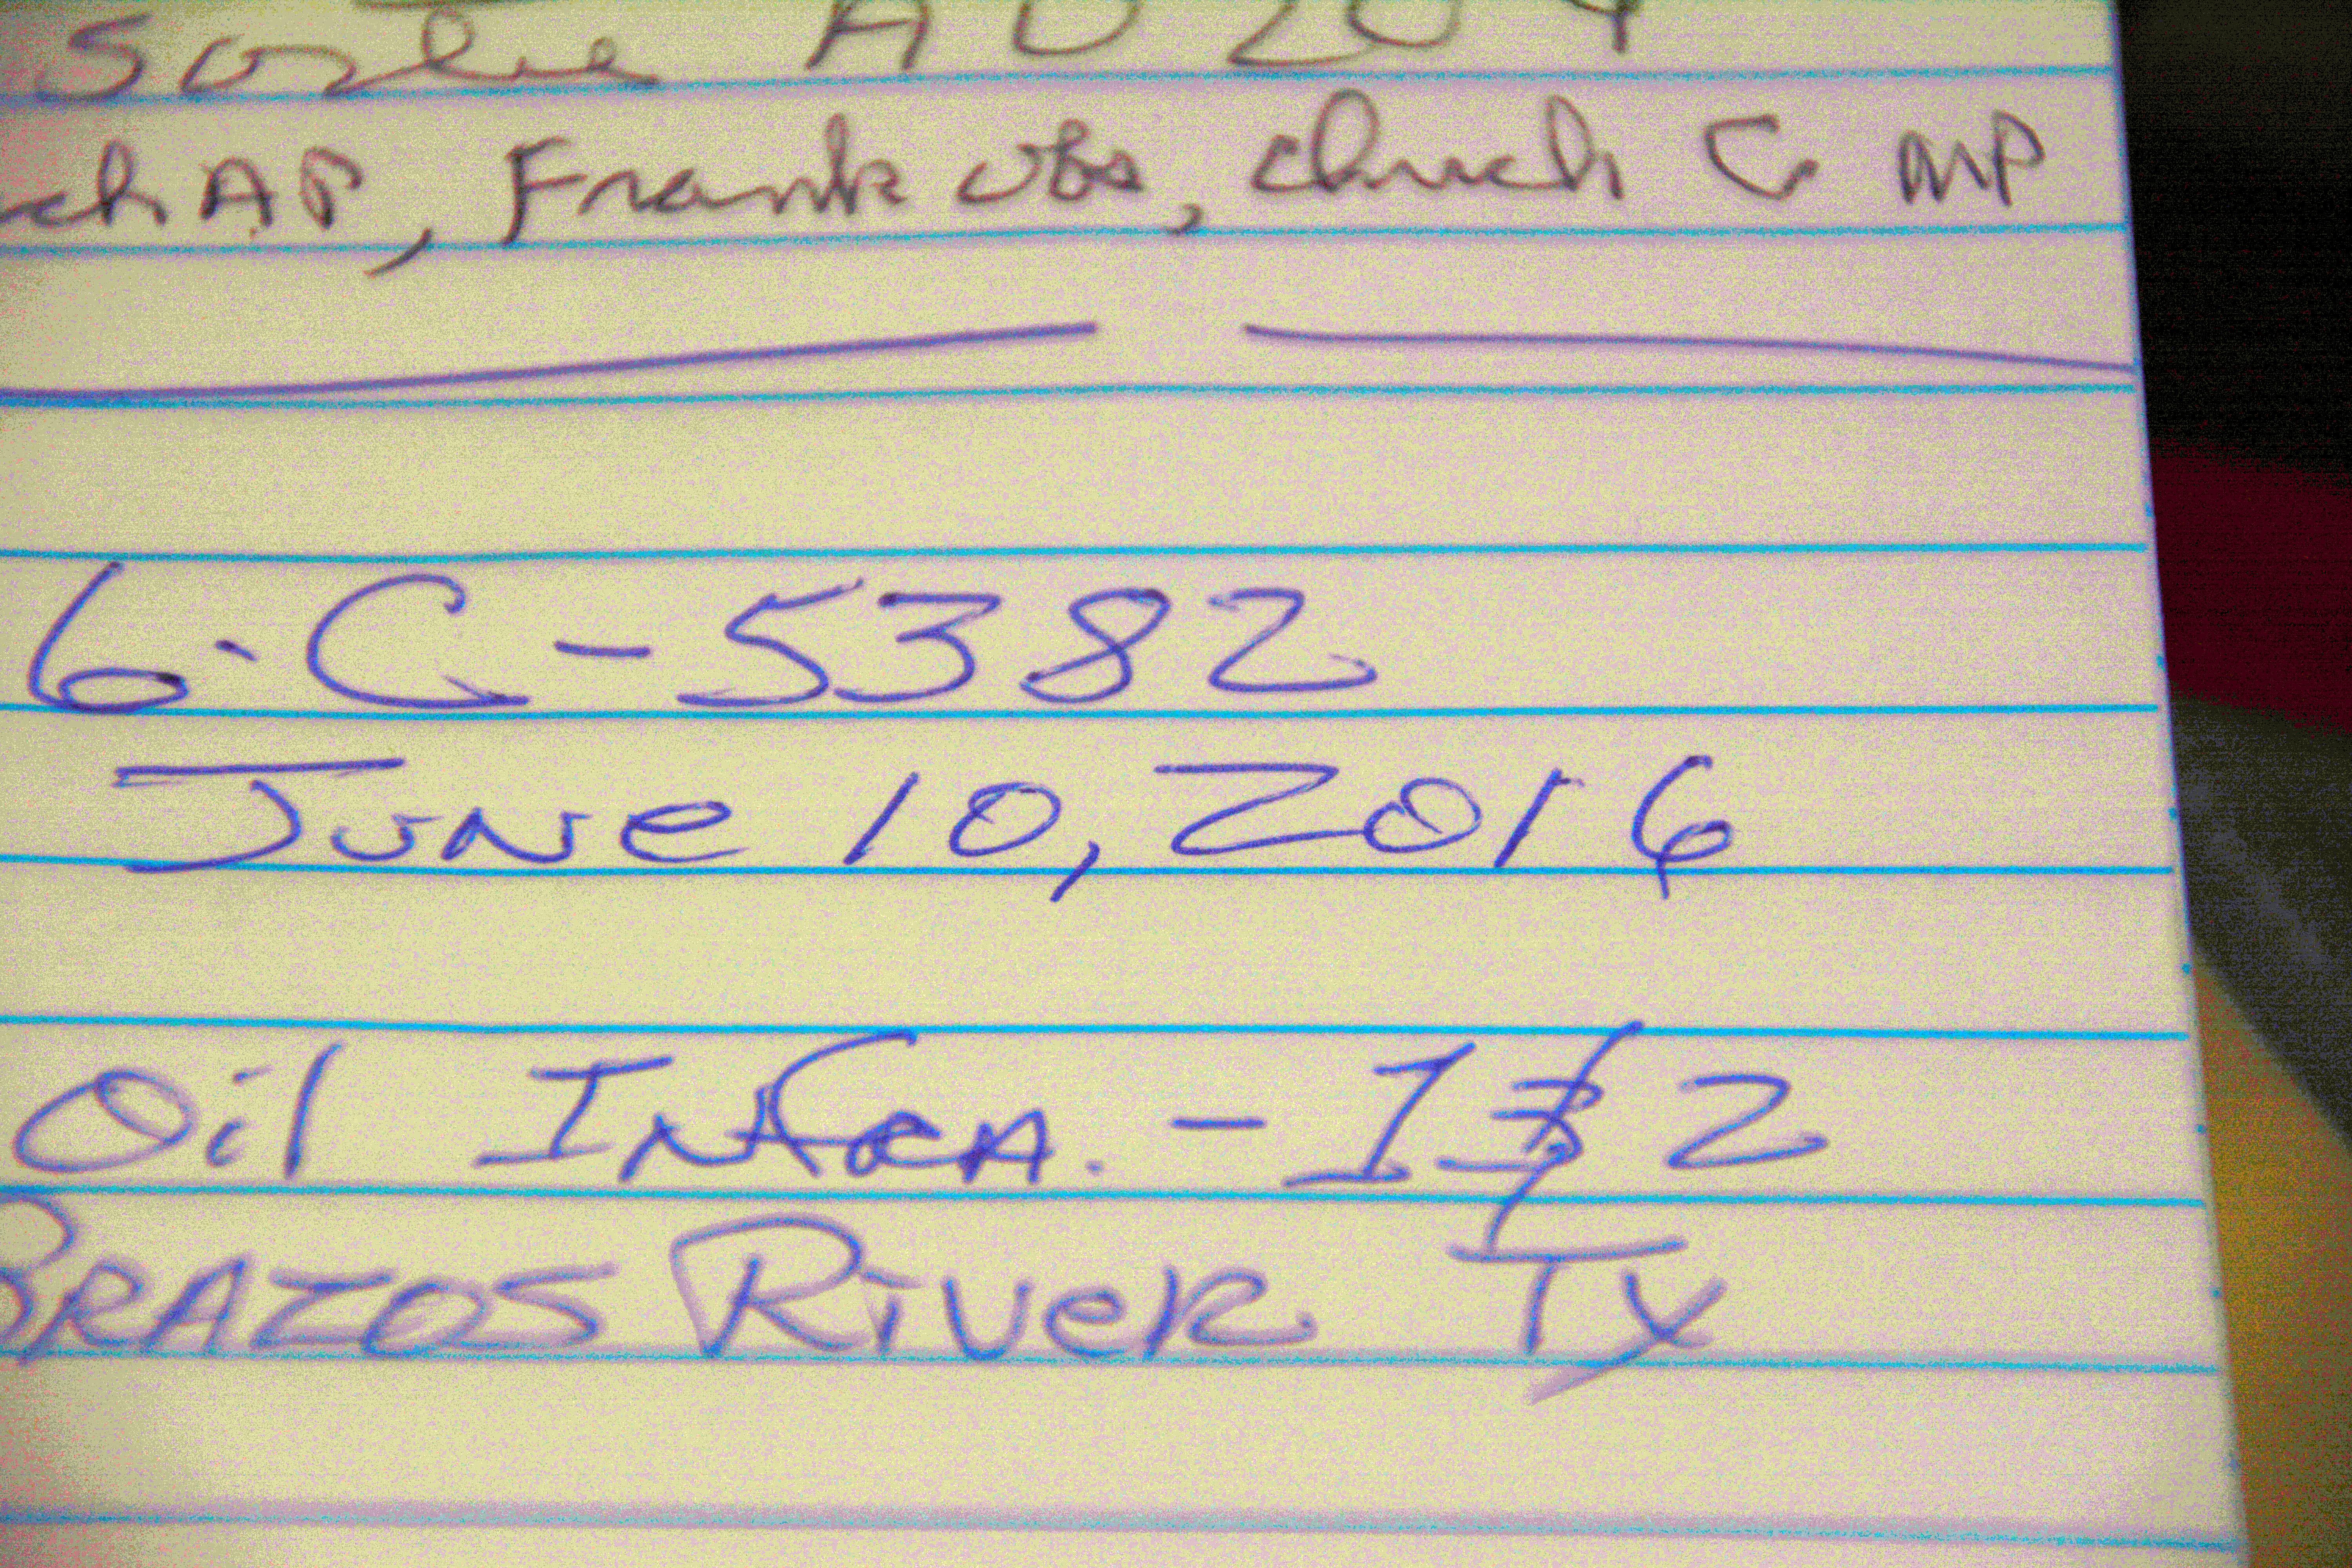 Sortie A0204
ch AP, Frank obs, chuck G MP
6·C-5382
June 10, 2016
Oil INfRA. - 1 & 2
BRAZOS RIVER TX